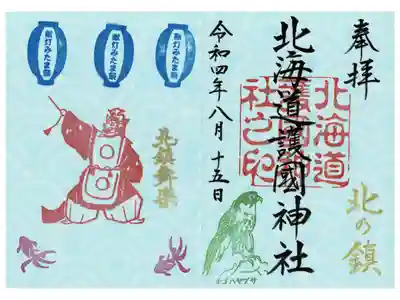 奉拝
北海道
護國神
社之印
北海道護國神社
令和四年八月十五日
北の鎮
献灯みたま祭
献灯みたま祭
献灯みたま祭